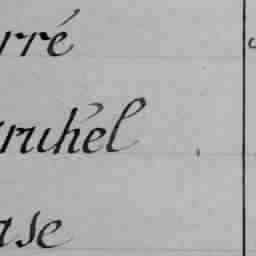 rré
ruhel
ase